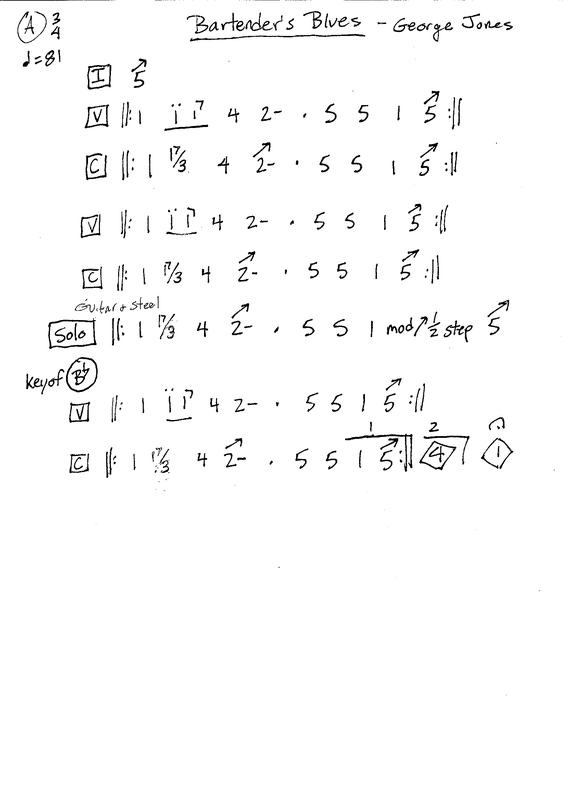 A 3/4 Bartender's Blues - George Jones
♩=81
I 5
V 𝄆 1 1 1⁷ 4 2- . 5 5 1 5 𝄇
C 𝄆 1 1⁷/3 4 2- . 5 5 1 5 𝄇
V 𝄆 1 1 1⁷ 4 2- . 5 5 1 5 𝄇
C 𝄆 1 1⁷/3 4 2- . 5 5 1 5 𝄇
Guitar + Steel
Solo 𝄆 1 1⁷/3 4 2- . 5 5 1 mod ↗ 1/2 step 5
key of B♭
V 𝄆 1 1 1⁷ 4 2- . 5 5 1 5 𝄇
1 2
C 𝄆 1 1⁷/3 4 2- . 5 5 1 5 𝄇 4 1